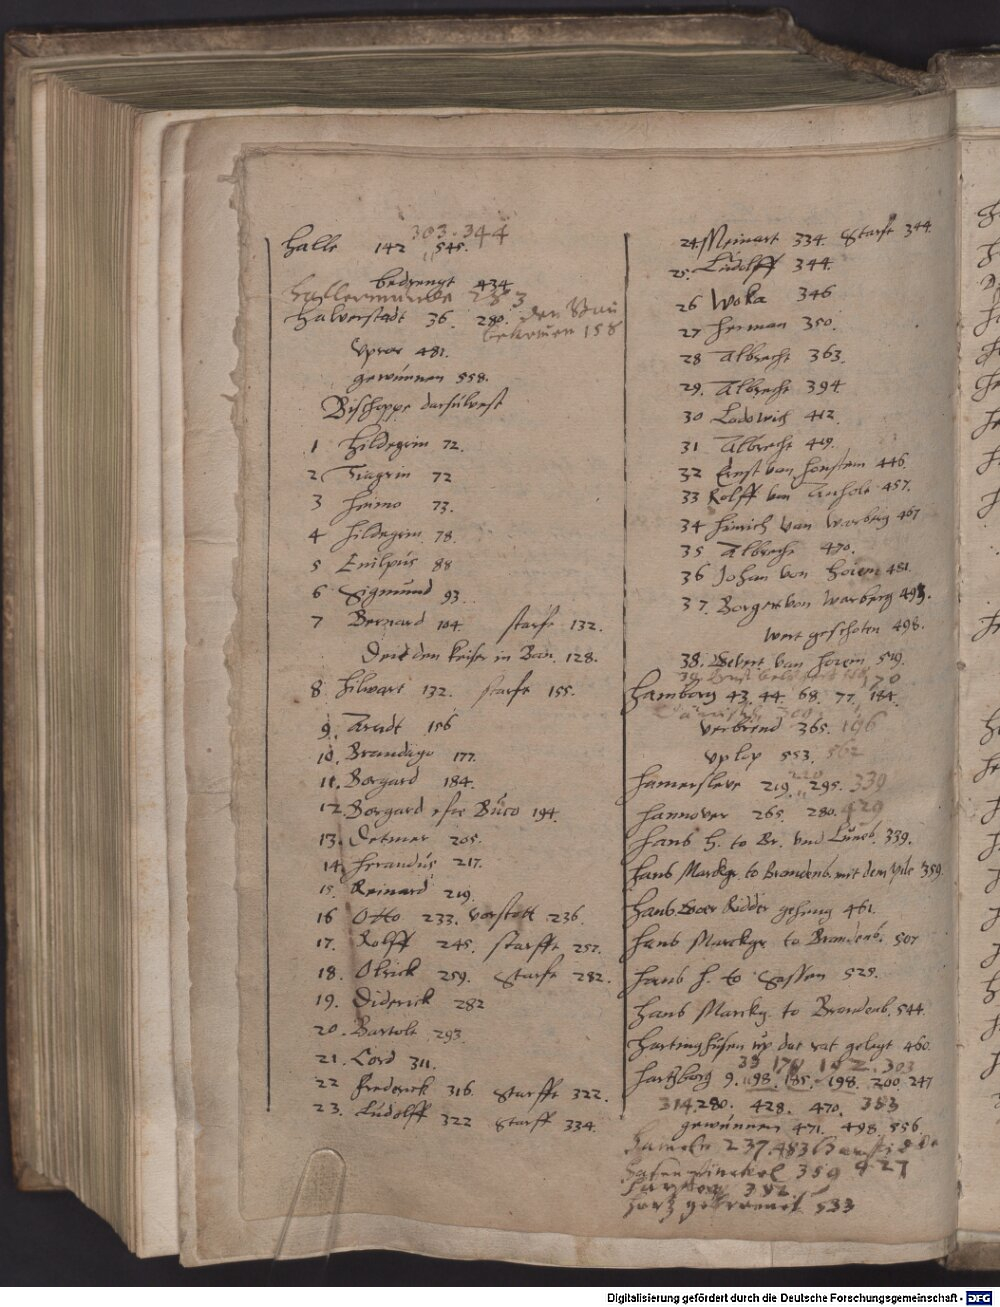 303. 344
Halle 142 545.
bedrengt 434
Hallermunde 283
Halverstadt 36. 280. den
158
Uprор 481.
gewunnen 558.
Bischoppe darsulvest
1 Hildegrin 72.
2 Tiagrin 72
3 Heimo 73.
4 Hildegrin 78.
5 Emilpus 88
6 Sigmund 93
7 Bernard 104. starfe 132.
Deit den keiser in Ban. 128.
8 Hilwart 132. starfe 155.
9. Arndt 156
10. Brandago 177.
11. Borgard 184.
12. Borgard efte Buco 194.
13. Detmer 205.
14. Herandus 217.
15. Reinard 219.
16 Otto 233. vorstott 236.
17. Rolff 245. starffe 257.
18. Olrick 259. Starfe 282.
19. Diderick 282
20. Bartolt 293.
21. Cord 311.
22 Frederick 316. Starffe 322.
23. Ludolff 322 Starff 334.
24. Meinart 334. Starfe 344.
25. Ludolff 344.
26 Woka 346
27 Herman 350.
28 Albrecht 363.
29. Albrecht 394
30 Lodowich 412.
31 Albrecht 419.
32 Ernst van Honstein 446.
33 Rolff van Anholt 457.
34 Hinrich van Warberg 467
35 Albrecht 470.
36 Johan von Hoiem 481.
37. Borgert von Warberg 493.
wert geschoten 498.
38. Gebert van Hoiem 519.
39. Ernst 570
Hamborg 43. 44. 68. 77. 184.
verbrend 365. 196
uplop 553. 562
Hamersleve 219. 295. 339
Hannover 265. 280. 429
Hans H. to Br. und Luneb. 339.
Hans Marckgr. to Brandenb. mit dem pile 359.
Hans Ridder 461.
Hans Marckgr to Brandenb. 507
Hans H. to Sassen 525.
Hans Marckg. to Brandenb. 544.
Hartinghusen up dat rat gelegt 460.
303
Hartzborg 9. 98. 185. 198. 200. 247
314. 280. 428. 470. 353
gewunnen 471. 498. 556.
Hameln 237. 483
359 427
392.
Hartz 533
Digitalisierung gefördert durch die Deutsche Forschungsgemeinschaft - DFG